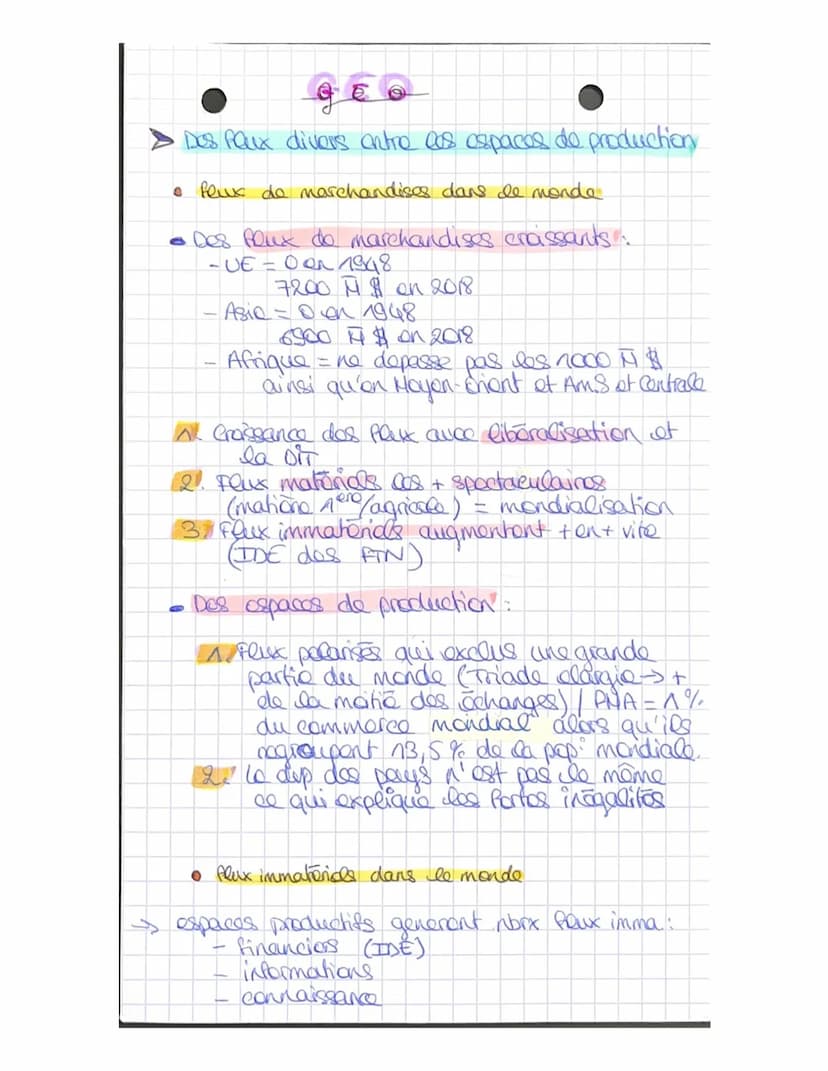 GEO
➤ Des flux divers entre les espaces de production
• flux de marchandises dans le monde
- Des flux de marchandises croissants :
- UE = 0 en 1948
7200 M̄ $ en 2018
- Asie = 0 en 1948
6900 M̄ $ en 2018
- Afrique = ne dépasse pas les 1000 M̄ $
ainsi qu'en Moyen-Orient et Am.S et Centrale
1. Croissance des flux avec libéralisation et
la DIT
2. Flux matériels les + spectaculaires
(matière 1ère/agricole) = mondialisation
3. Flux immatériels augmentent + en + vite
(IDE des FTN)
- Des espaces de production :
1. Flux polarisés qui exclus une grande
partie du monde (Triade élargie → +
de la moitié des échanges) / PMA = 1%
du commerce mondial alors qu'ils
regroupent 13,5% de la pop° mondiale.
2. Le dvp des pays n'est pas le même
ce qui explique les fortes inégalités
• flux immatériels dans le monde
→ espaces productifs génèrent nbrx flux imma :
- financiers (IDE)
- informations
- connaissance